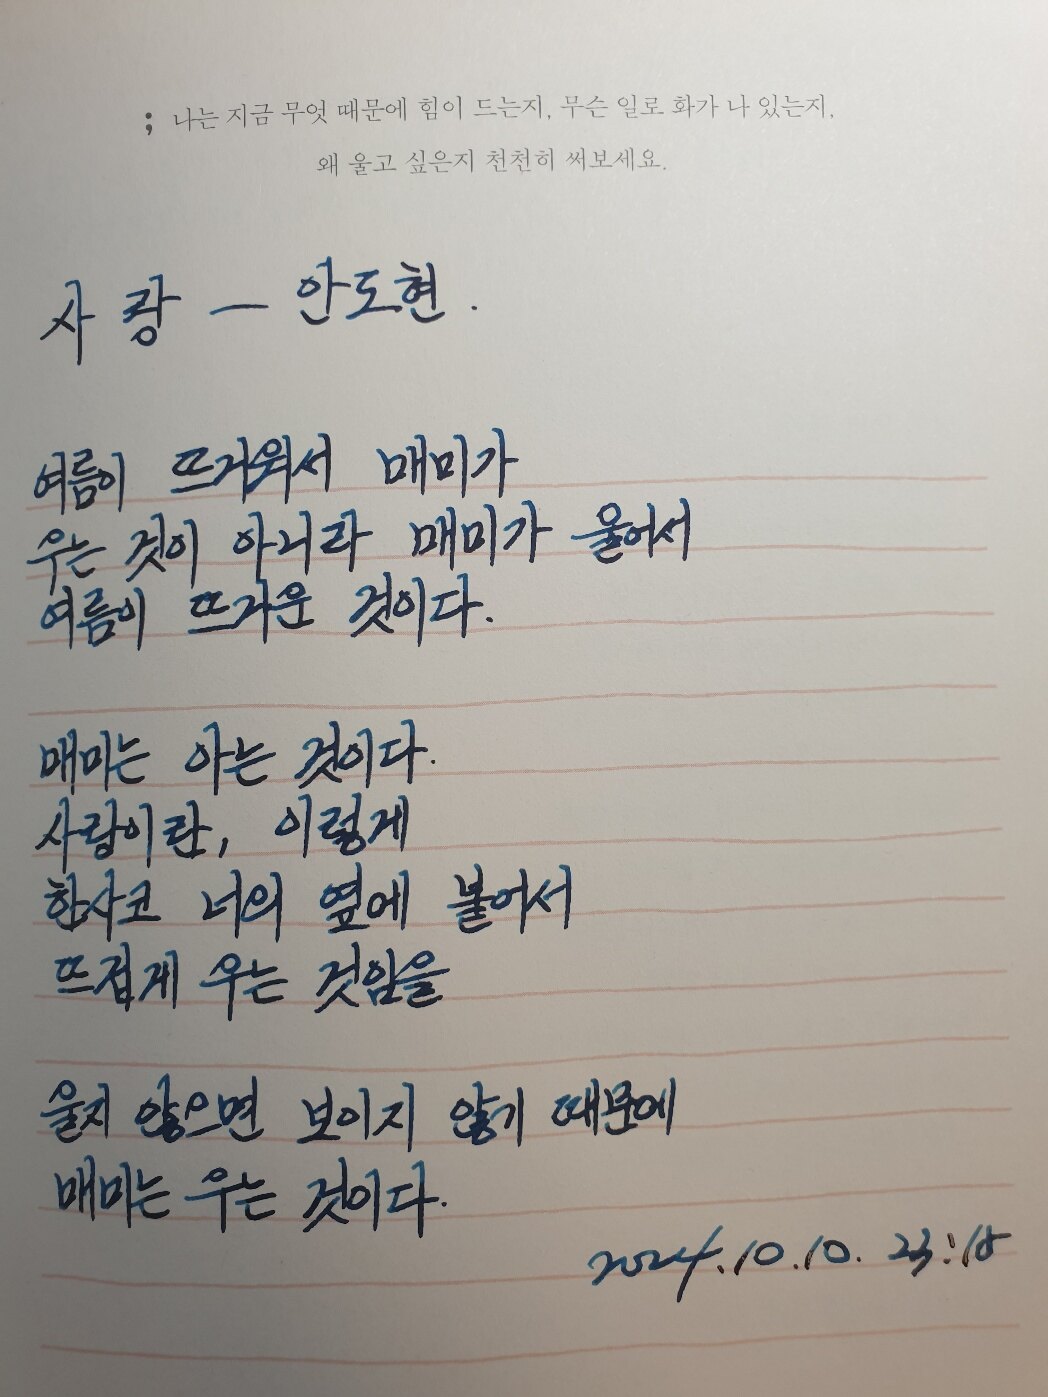 ; 나는 지금 무엇 때문에 힘이 드는지, 무슨 일로 화가 나 있는지,
왜 울고 싶은지 천천히 써보세요.
사랑 — 안도현.
여름이 뜨거워서 매미가
우는 것이 아니라 매미가 울어서
여름이 뜨거운 것이다.
매미는 아는 것이다.
사랑이란, 이렇게
한사코 너의 옆에 붙어서
뜨겁게 우는 것임을
울지 않으면 보이지 않기 때문에
매미는 우는 것이다.
2024.10.10. 23:18